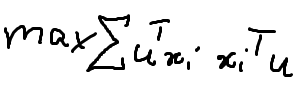 max∑uᵀxᵢ xᵢᵀu